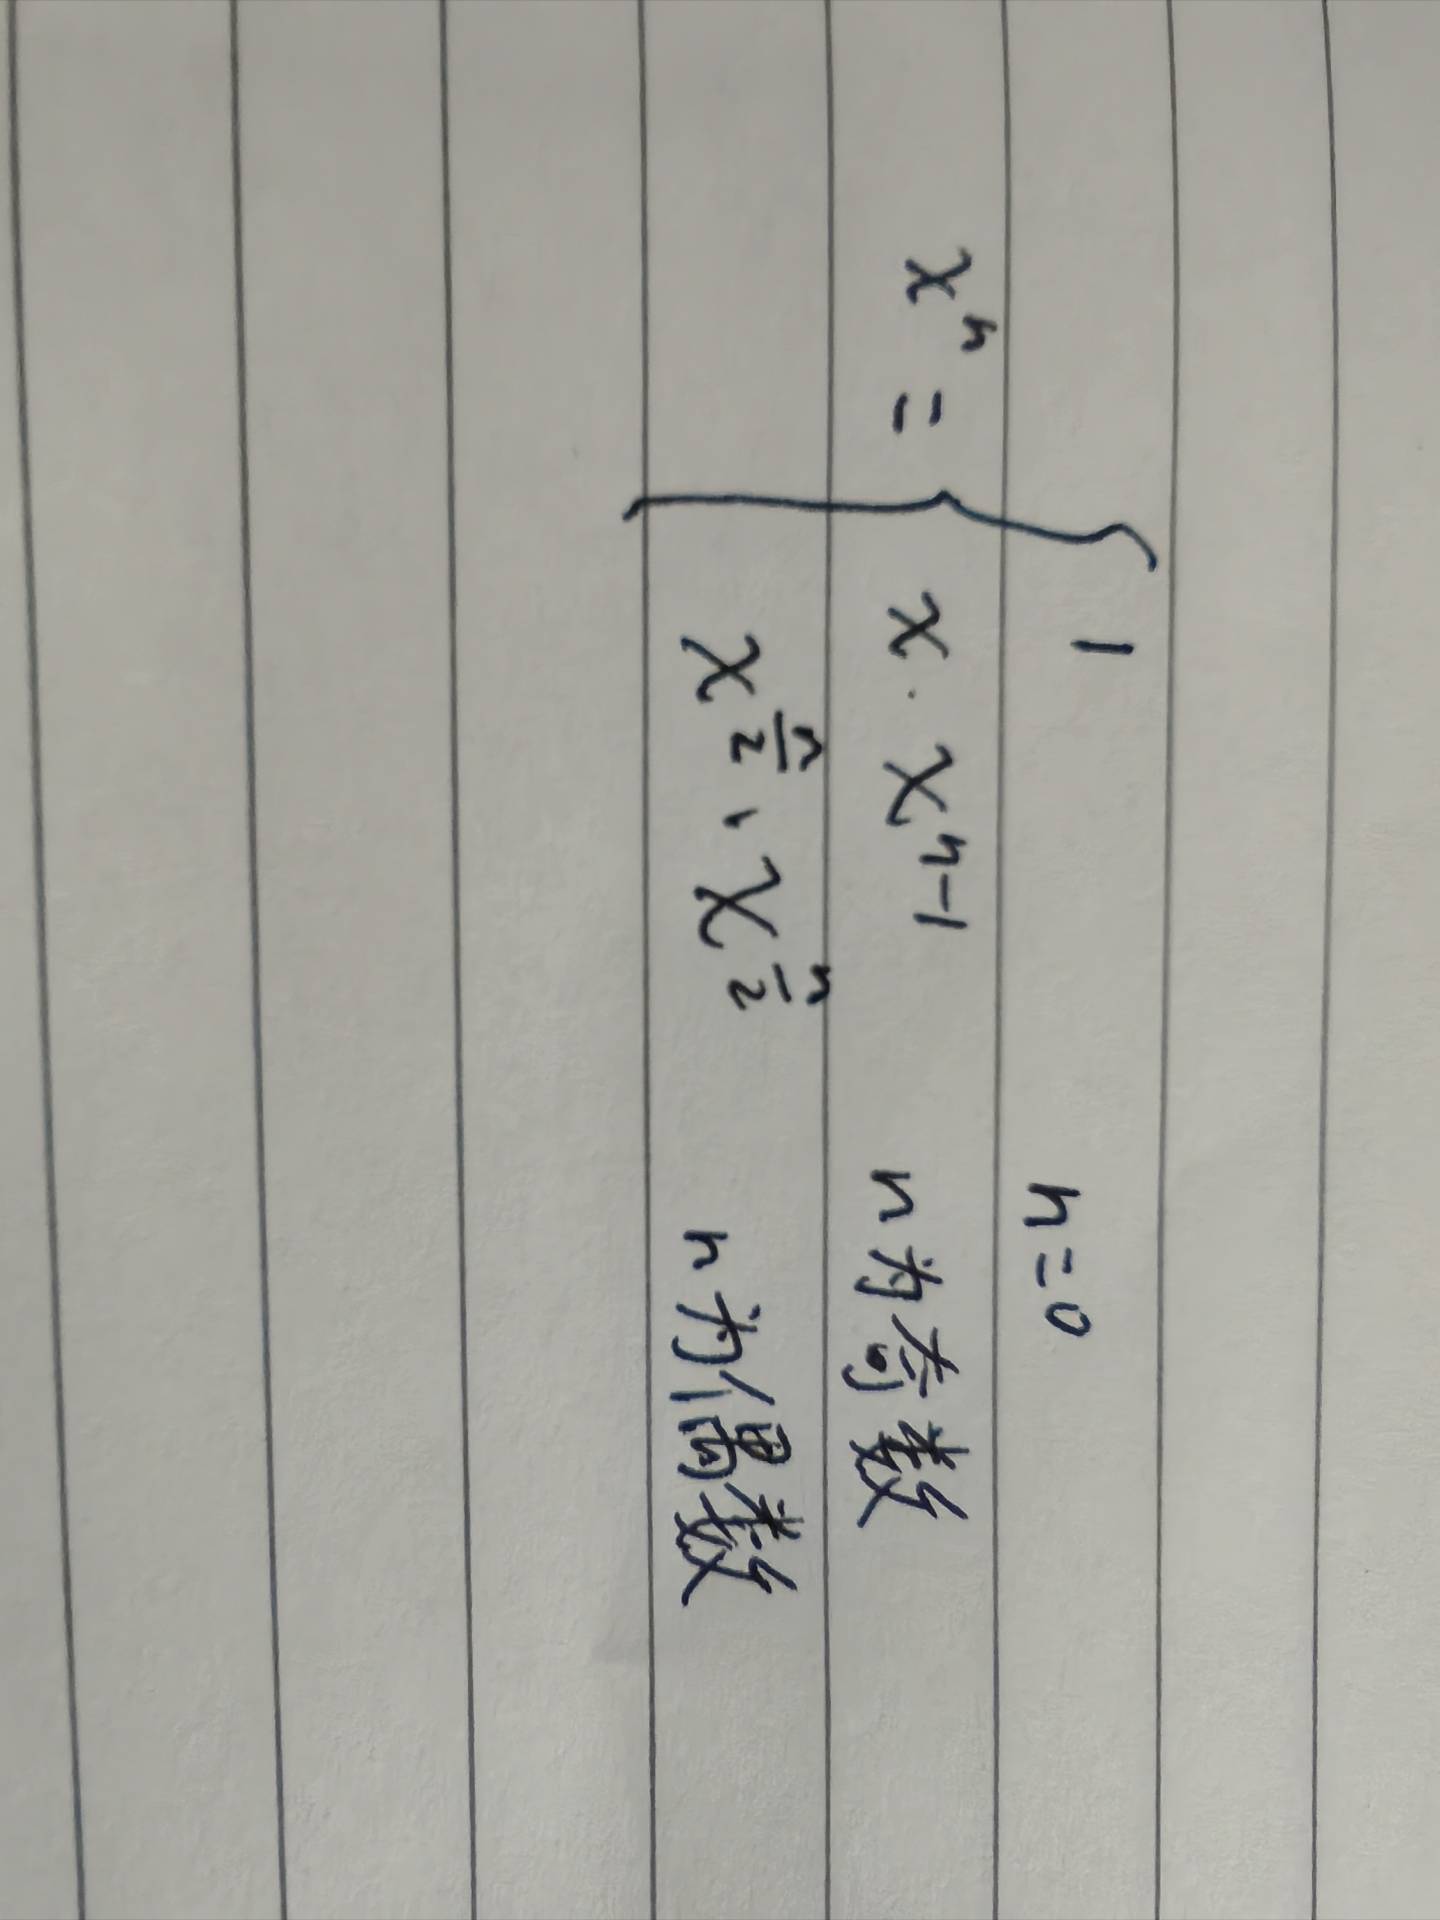 1 n=0
xⁿ = { x · xⁿ⁻¹ n为奇数
x^(n/2) · x^(n/2) n为偶数